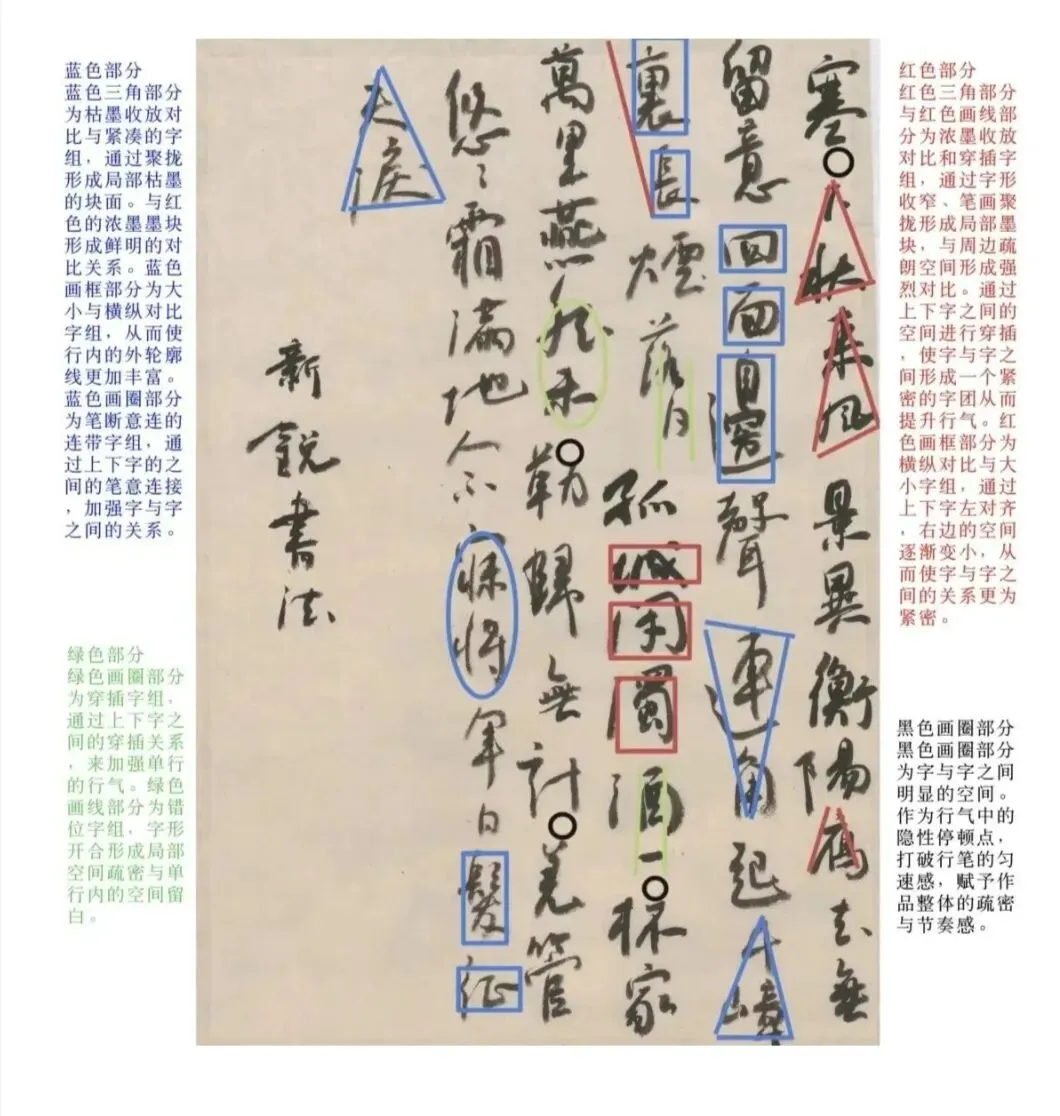 蓝色部分
蓝色三角部分
为枯墨收放对
比与紧凑的字
组，通过聚拢
形成局部枯墨
的块面。与红
色的浓墨墨块
形成鲜明的对
比关系。蓝色
画框部分为大
小与横纵对比
字组，从而使
行内的外轮廓
线更加丰富。
蓝色画圈部分
为笔断意连的
连带字组，通
过上下字的之
间的笔意连接
，加强字与字
之间的关系。
绿色部分
绿色画圈部分
为穿插字组，
通过上下字之
间的穿插关系
，来加强单行
的行气。绿色
画线部分为错
位字组，字形
开合形成局部
空间疏密与单
行内的空间留
白。
塞下秋来風景異衡陽雁去無
留意四面邊聲連角起千嶂
裏長煙落日孤城閉濁酒一杯家
萬里燕然未勒歸無計羌管
悠々霜滿地人不寐將軍白髮征
夫淚
新銳書法
红色部分
红色三角部分
与红色画线部
分为浓墨收放
对比和穿插字
组，通过字形
收窄、笔画聚
拢形成局部墨
块，与周边疏
朗空间形成强
烈对比。通过
上下字之间的
空间进行穿插
，使字与字之
间形成一个紧
密的字团从而
提升行气。红
色画框部分为
横纵对比与大
小字组，通过
上下字左对齐
，右边的空间
逐渐变小，从
而使字与字之
间的关系更为
紧密。
黑色画圈部分
黑色画圈部分
为字与字之间
明显的空间。
作为行气中的
隐性停顿点，
打破行笔的匀
速感，赋予作
品整体的疏密
与节奏感。